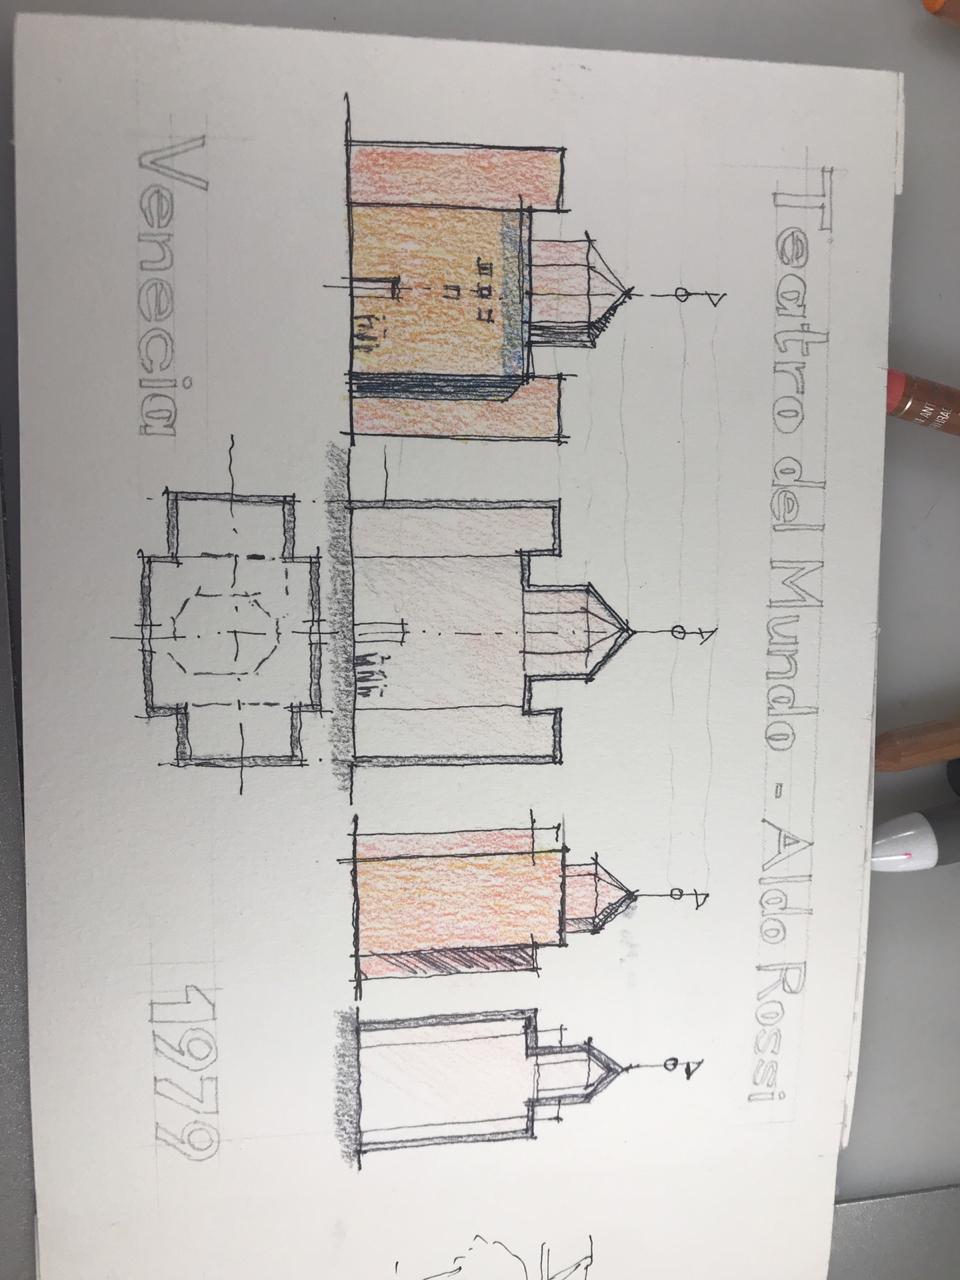 Teatro del Mundo - Aldo Rossi
Venecia
1979